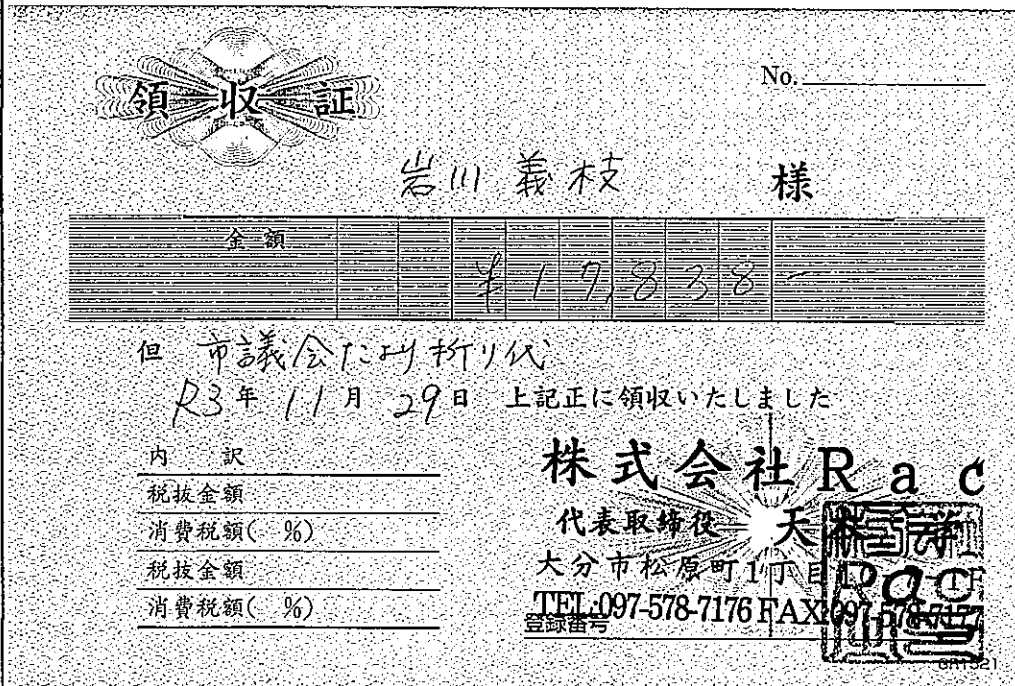 領収証
No.
岩川 義枝 様
金額
¥17,838-
但 市議会だより折り代
R3年 11月 29日 上記正に領収いたしました
内 訳
税抜金額
消費税額( %)
税抜金額
消費税額( %)
株式会社Rac
代表取締役 天
大分市松原町1丁目
TEL:097-578-7176 FAX:097-578-7177
登録番号
Rac